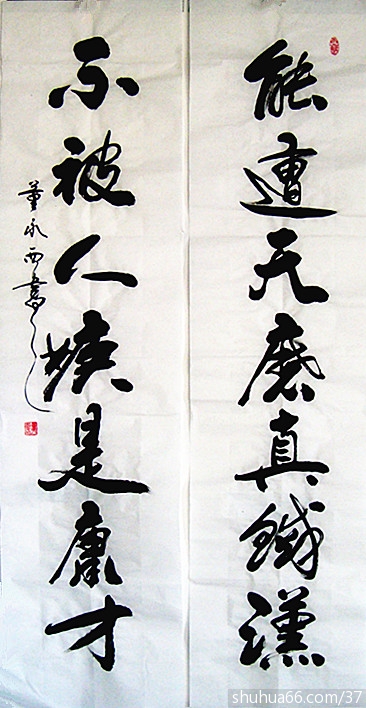 能遭天磨真鐵漢
不被人嫉是庸才
董永西書
shuhua66.com/37